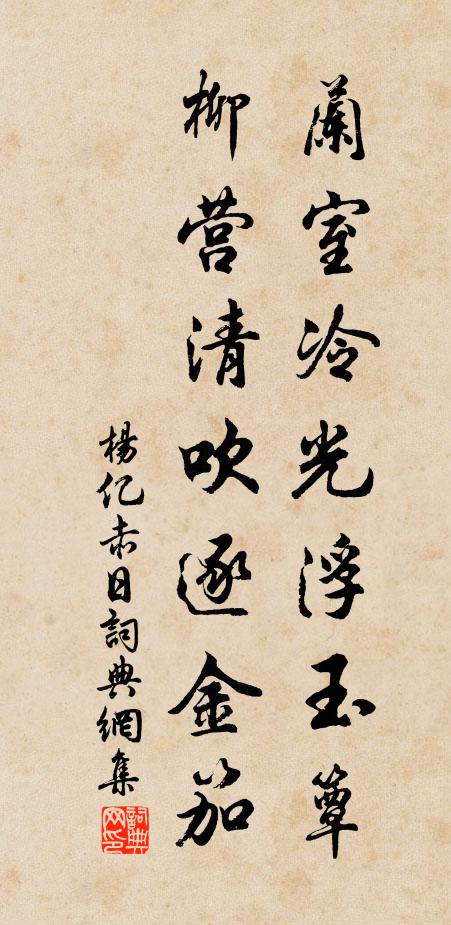 蘭室冷光浮玉簟
柳营清吹逐金笳
楊亿赤日詞典網集
詞典网印